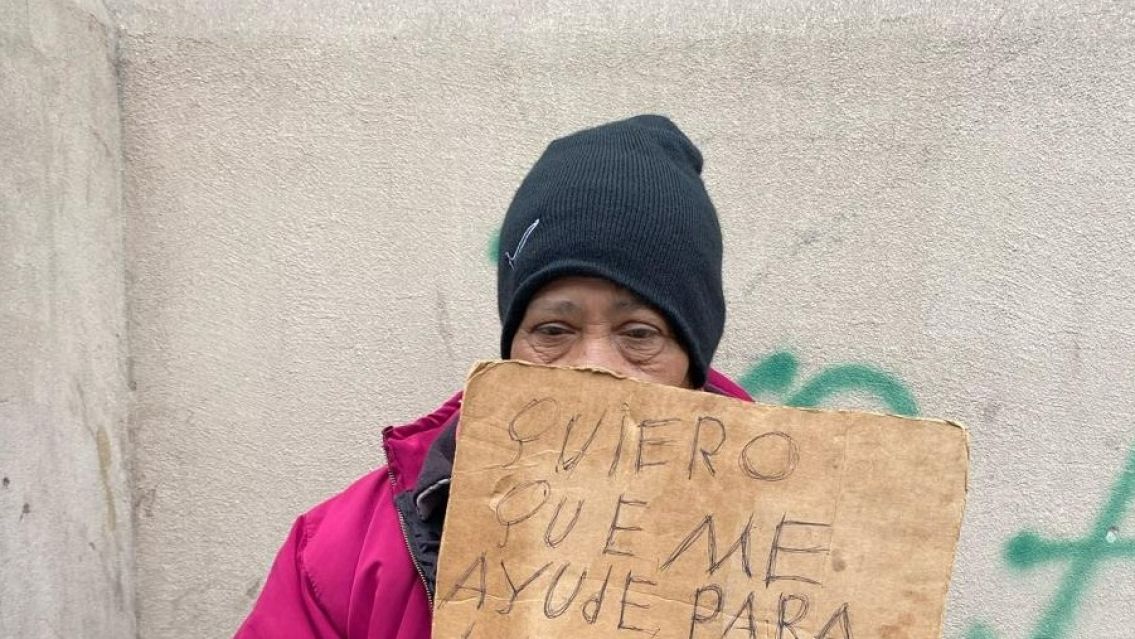 QUIERO
QUE ME
AYUdE PARA